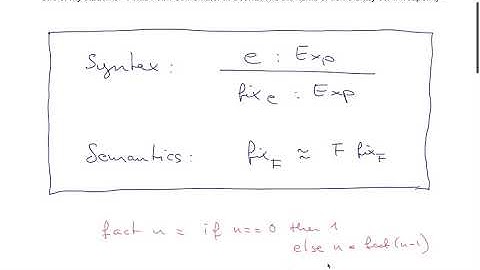 Syntax : e : Exp
fix e : Exp
Semantics : fix F ≈ F fix F
fact n = if n == 0 then 1
else n * fact (n-1)